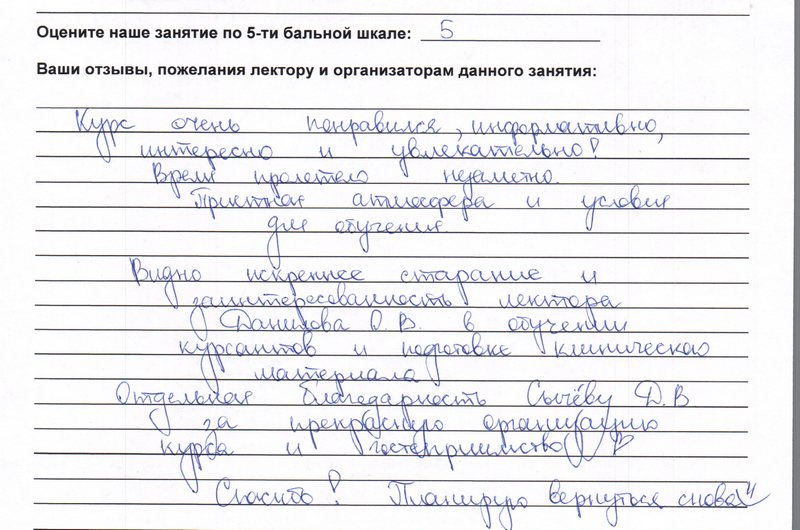 Оцените наше занятие по 5-ти бальной шкале: 5
Ваши отзывы, пожелания лектору и организаторам данного занятия:
Курс очень понравился, информативно,
интересно и увлекательно!
Время пролетело незаметно.
Приятная атмосфера и условия
для обучения.
Видно искреннее старание и
заинтересованность лектора
Данилова О.В. в обучении
курсантов и подготовке клинического
материала
Отдельная благодарность Сычёву Д.В
за прекрасную организацию
курса и гостеприимство
Спасибо! Планирую вернуться снова